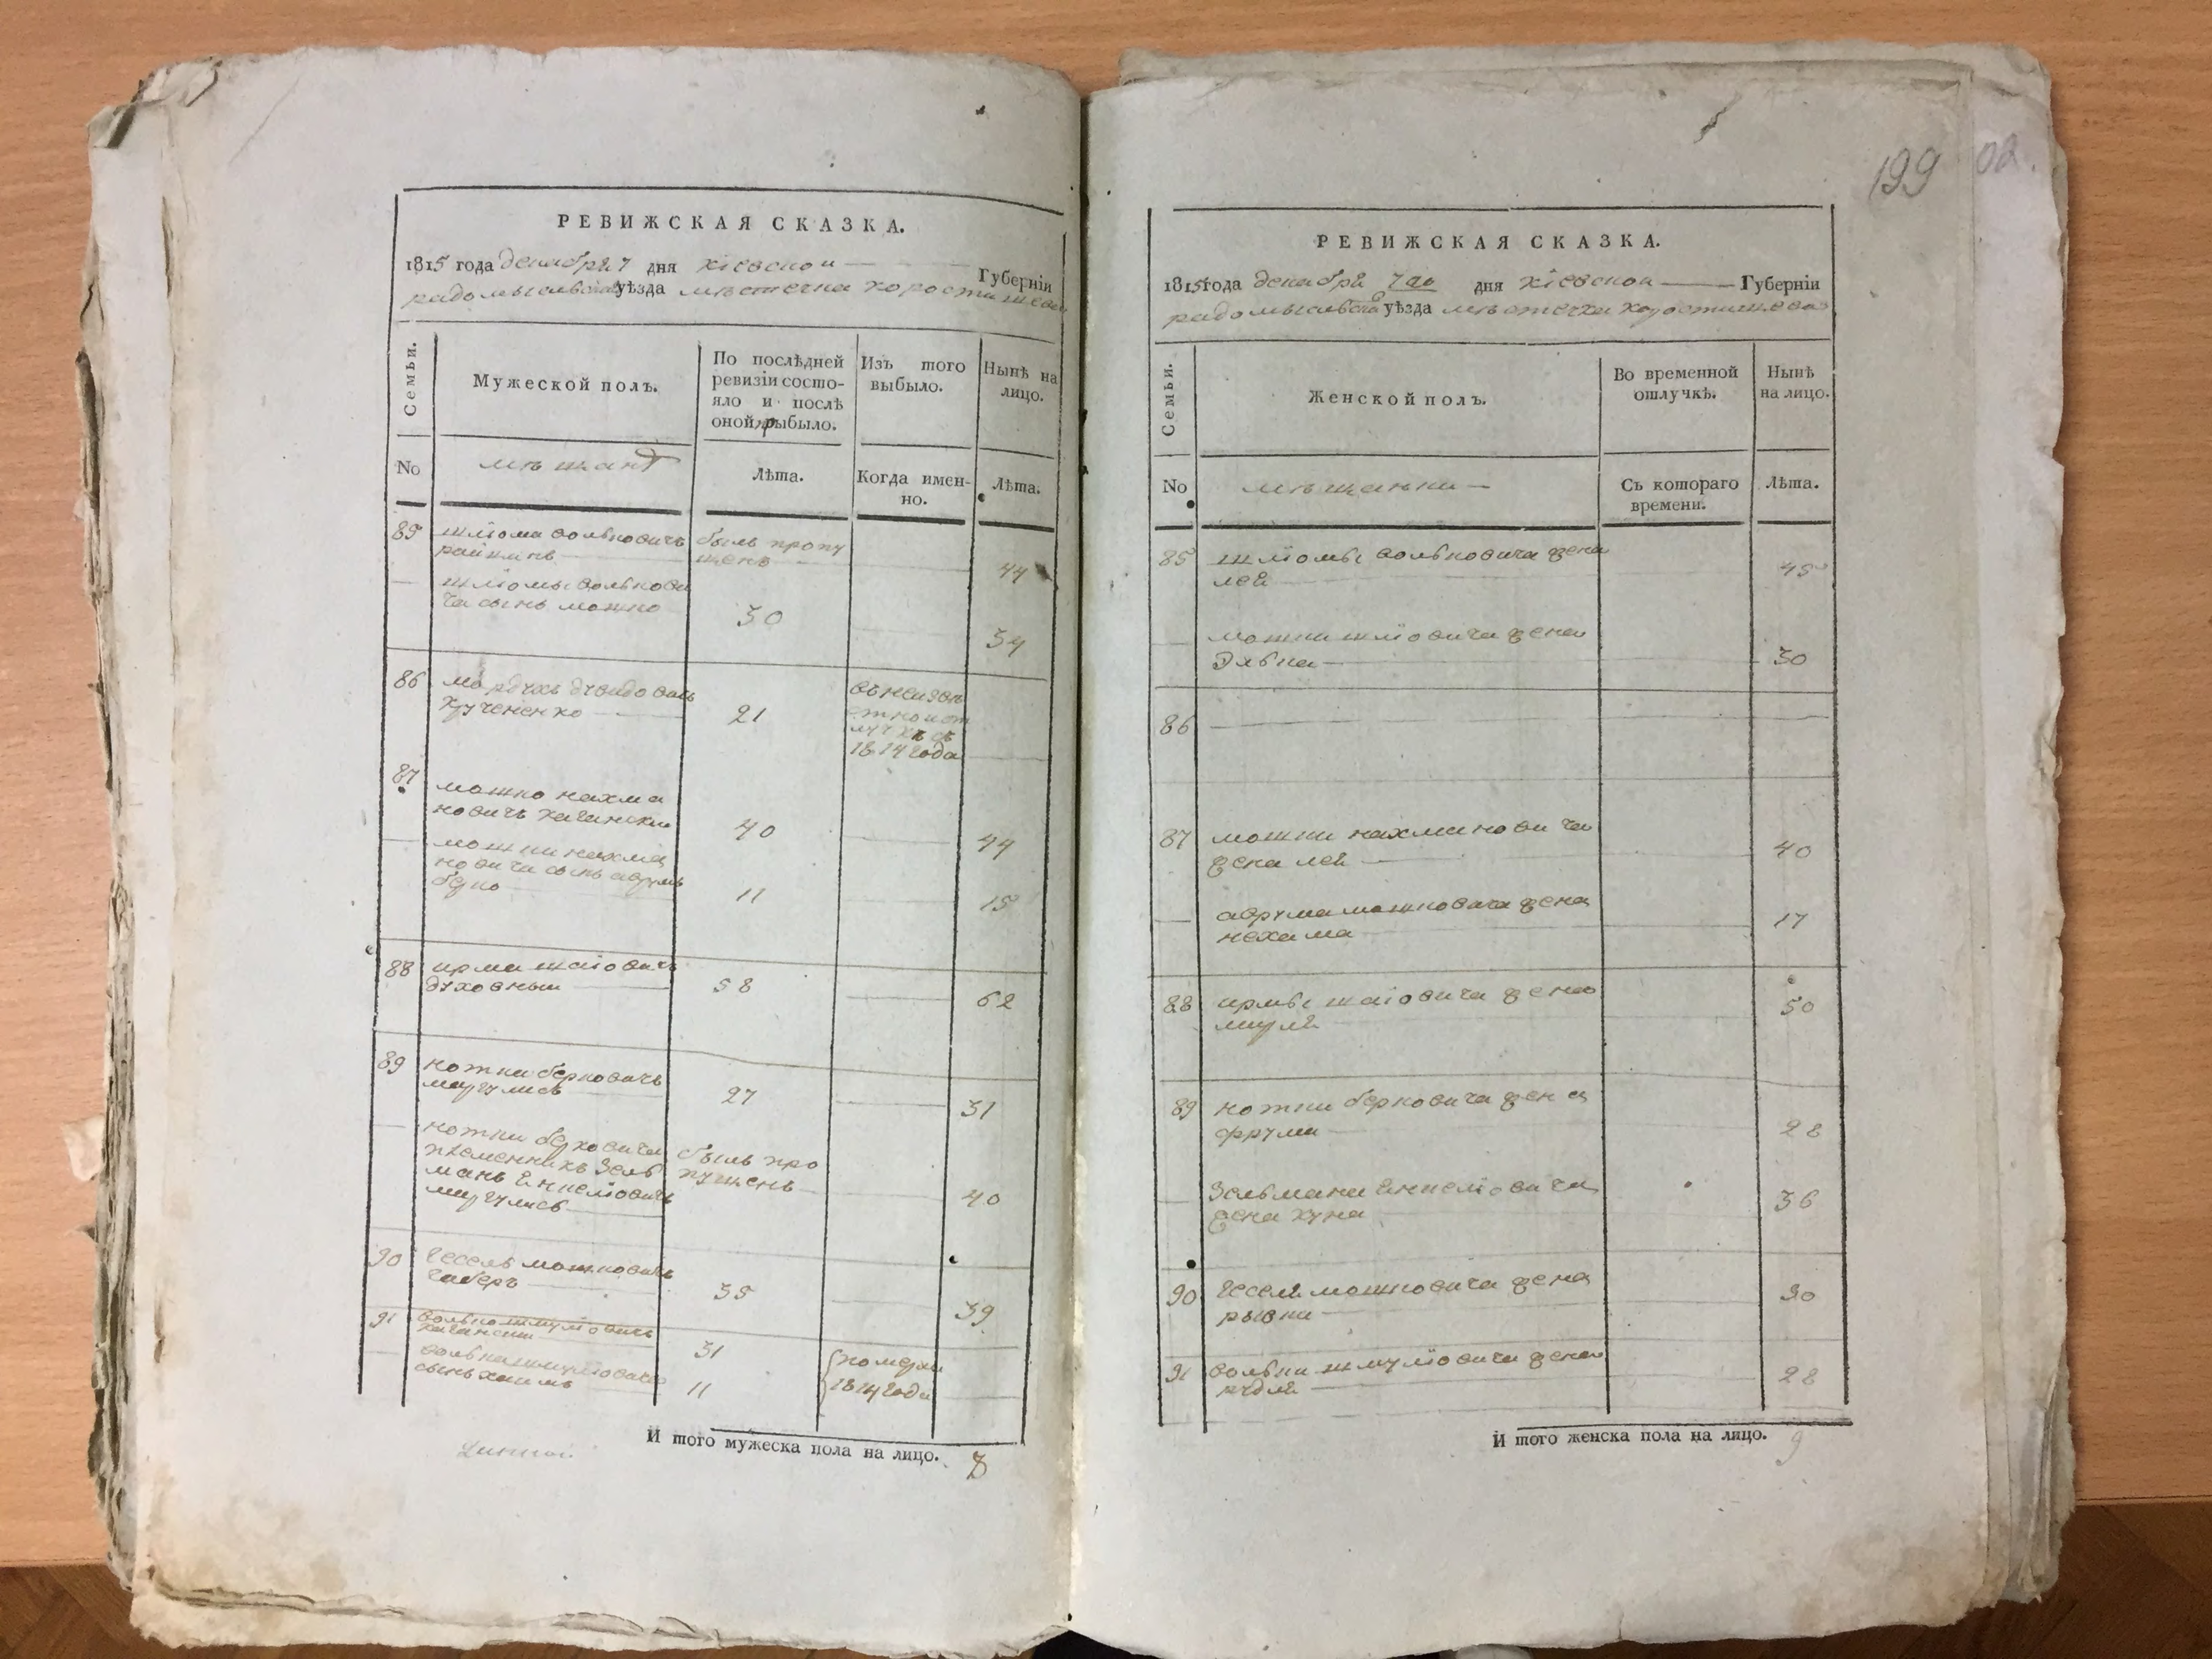 РЕВИЖСКАЯ СКАЗКА.
1815 года декабря 7 дня кіевской Губерніи
радомысльска уѣзда мѣстечка коростишева
Семьи.
Мужеской полъ.
По послѣдней
ревизіи состо-
яло и послѣ
оной прыбыло.
Изъ того
выбыло.
Нынѣ на
лицо.
No
мѣщанъ
Лѣта.
Когда имен-
но.
Лѣта.
85 шліома вольковичъ былъ пропу
райхинъ щенъ 44
шліомы волькови
ча сынъ мошко 30 34
86 мордухъ дувидовичъ
кучененко 21
въ неизвѣ
стной от
лучкѣ съ
1814 года
87 мошко нахма
новичъ каганский 40 44
мошки нахма
новича сынъ аврумъ
берко 11 15
88 ирма шаіовичъ
духовный 58 62
89 ноткы берковичъ
маргулисъ 27 31
нотки берковича
племенникъ Зель
манъ янкеліовичъ
маргулисъ
былъ про
пущенъ 40
90 гесель мошковичъ
габеръ 35 39
91 волько шмуліовичъ
каганский 31
волька шмуліовича
сынъ хаимъ 11
померли
1814 года
И того мужеска пола на лицо. 8
199
РЕВИЖСКАЯ СКАЗКА.
1815 года декабря 7го дня кіевской Губерніи
радомысльска уѣзда мѣстечка коростишева
Семьи.
Женской полъ.
Во временной
отлучкѣ.
Нынѣ
на лицо.
No
мѣщанки
Съ котораго
времени.
Лѣта.
85 шліомы вольковича жена
лея 45
мошки шліовича жена
Элька 30
86
87 мошки нахмановича
жена лея 40
аврума мошковича жена
нехама 17
88 ирмы шаіовича жена
миря 50
89 нотки берковича жена
фрума 28
Зельмана янкеліовича
жена хуна 36
90 геселя мошковича жена
рывка 30
91 вольки шмуліовича жена
рудля 28
И того женска пола на лицо. 9